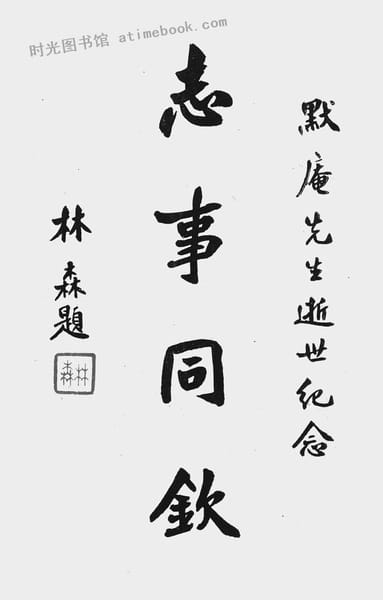 时光图书馆 atimebook.com
默庵先生逝世纪念
志事同欽
林森題
林森